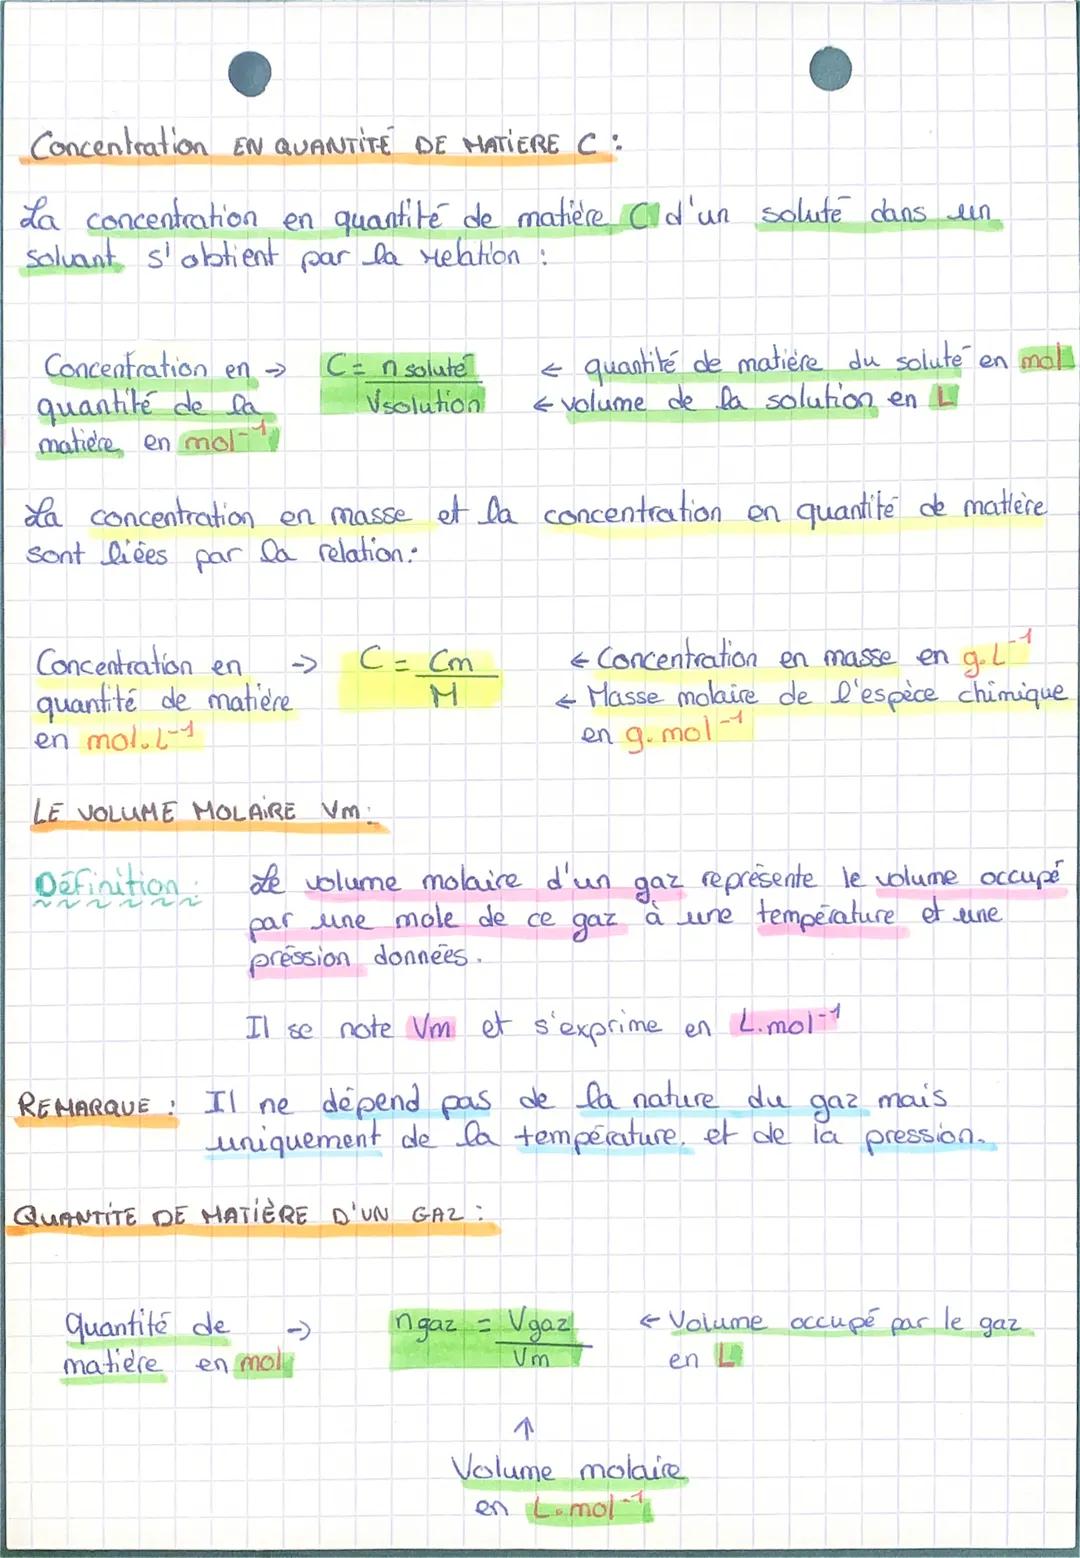 Concentration EN QUANTITÉ DE MATIERE C :
La concentration en quantité de matière C d'un soluté dans un
solvant s'obtient par la relation :
Concentration en → C = n soluté ← quantité de matière du soluté en mol
quantité de la Vsolution ← volume de la solution en L
matière en mol-1
La concentration en masse et la concentration en quantité de matière
sont liées par la relation:
Concentration en → C = Cm ← Concentration en masse en g.L-1
quantité de matière M ← Masse molaire de l'espèce chimique
en mol.L-1 en g.mol-1
LE VOLUME MOLAIRE Vm:
Définition : Le volume molaire d'un gaz représente le volume occupé
par une mole de ce gaz à une température et une
préssion données.
Il se note Vm et s'exprime en L.mol-1
REMARQUE : Il ne dépend pas de la nature du gaz mais
uniquement de la température, et de la pression.
QUANTITE DE MATIÈRE D'UN GAZ :
Quantité de → ngaz = Vgaz ← Volume occupé par le gaz
matière en mol Vm en L
↑
Volume molaire
en L.mol-1